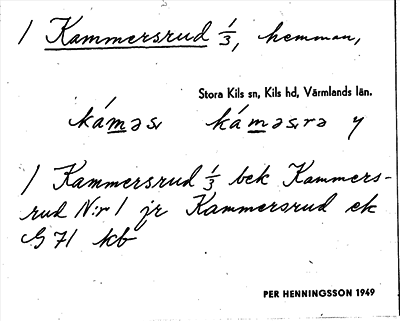 1 Kammersrud 1/3, hemman,
Stora Kils sn, Kils hd, Värmlands län.
káməs, káməsrə y
1 Kammersrud 1/3 bek Kammers-
rud N:r 1 jr Kammersrud ek
G 71 kb
PER HENNINGSSON 1949